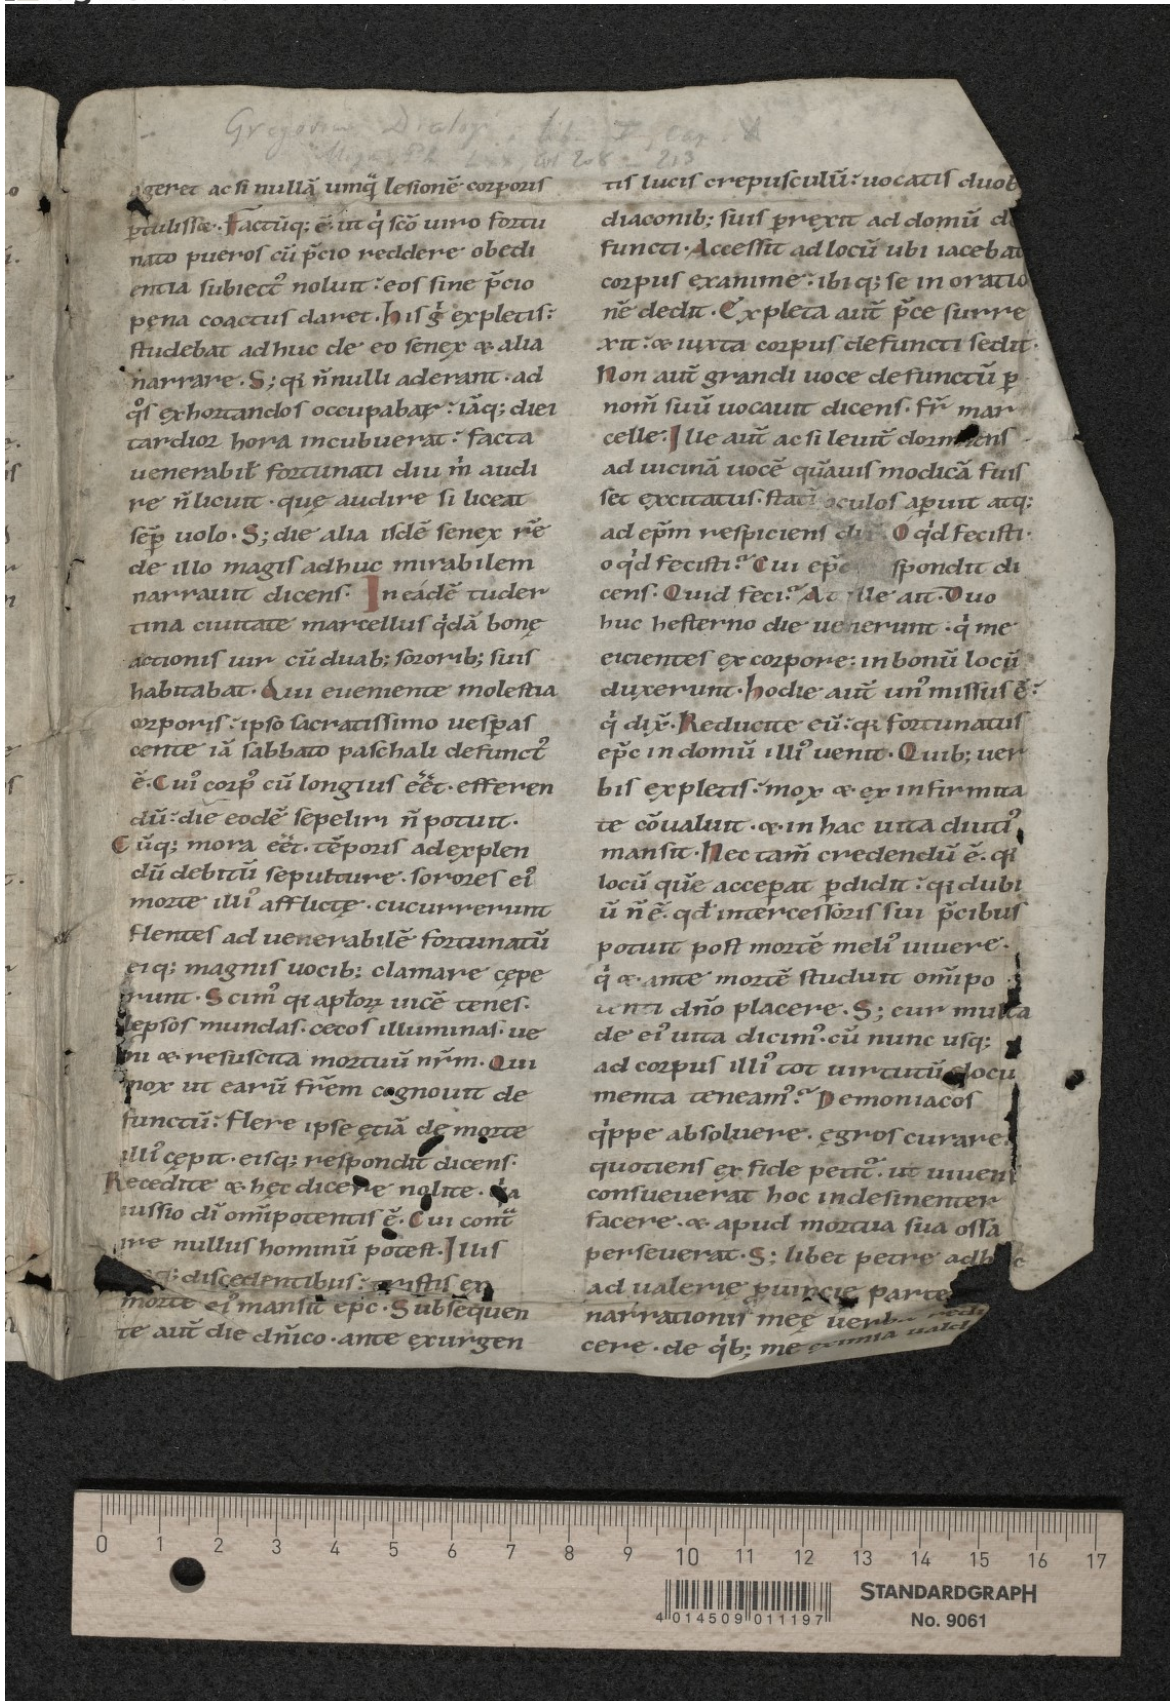 Gregorius Dialogi lib. I Cap. X
208 - 213
ageret ac si nullā umq̄ lesionē corporis
ꝑtulisset. Factūq; ē. ut q̇ scō uiro fortu
nato pueros cū p̄cio reddere obedi
entia subiectꝰ noluit: eos sine p̄cio
pena coactus daret. His g̊ expletis:
studebat adhuc de eo senex & alia
narrare. S; qi n̄nulli aderant. ad
q̊s exhortandos occupabar: iāq; diei
tardior hora incubuerat: facta
uenerabiłƚ fortunati diu m̄ audi
re n̄ licuit. quę audire si liceat
sēp uolo. S; die alia isdē senex rē
de illo magis adhuc mirabilem
narrauit dicens. In eádē tuder
tina ciuitate marcellus q̇dā bonę
actionis uir cū duab; sororib; suis
habitabat. Qui eueniente molestia
corporis: ipso sacratissimo uesꝑas
cente iā sabbato paschali defunctꝰ
ē. Cuiꝰ corpꝰ cū longius eēt. efferen
dū: die eodē sepeliri n̄ potuit.
Cūq; mora eēt. tēporis ad explen
dū debitū sepulture. sorores eiꝰ
morte illiꝰ afflictę. cucurrerunt
flentes ad uenerabilē fortunatū
eiq; magnis uocib; clamare cępe
runt. Scimꝰ qi aptoꝝ uicē tenes.
lepsos mundas. cecos illuminas. ue
ni & resuscita mortuū nr̄m. Qui
mox ut earū fr̄em cognouit de
functū: flere ipse ętiā de morte
illiꝰ cępit. eisq; respondit dicens.
Recedite & hęc dicere nolite. qia
iussio dī om̄ipotentis ē. Cui cont̄
ire nullus hominū potest. Illis
q; discedentibus: tristis ex
morte eiꝰ mansit ep̄c. Subsequen
te aut̄ die dn̄ico. ante exurgen
tis lucis crepusculū: uocatis duob
diaconib; suis ꝑrexit ad domū de
functi. Accessit ad locū ubi iacebat
corpus exanime: ibiq; se in oratio
nē dedit. Expleta aut̄ p̄ce surre
xit: & iuxta corpus defuncti sedit.
Non aut̄ grandi uoce defunctū ꝑ
nom̄ suū uocauit dicens. fr̄ mar
celle. Ille aut̄ ac si leuit̄ dormiens
ad uicinā uocē quāuis modicā fuis
set excitatus. stati oculos aꝑuit atq;
ad ep̄m respiciens dix. O q̇d fecisti.
o q̇d fecisti? Cui ep̄c spondit di
cens. Quid feci? At ille ait. Duo
huc hesterno die uenerunt. q̇ me
eicientes ex corpore: in bonū locū
duxerunt. Hodie aut̄ unꝰ missus ē:
q̇ dix̄. Reducite eū: qi fortunatus
ep̄c in domū illiꝰ uenit. Quib; uer
bis expletis: mox & ex infirmita
te cōualuit. & in hac uita diutiꝰ
mansit. Nec tam̄ credendū ē. qi
locū quē acceperat ꝑdidit: qi dubi
ū n̄ ē. qd̄ intercessoris sui p̄cibus
potuit post mortē meliꝰ uiuere.
q̇ & ante mortē studuit om̄ipo
tenti dn̄o placere. S; cur multa
de eiꝰ uita dicimꝰ. cū nunc usq;
ad corpus illiꝰ tot uirtutū docu
menta teneamꝰ? Demoniacos
q̇ppe absoluere. ęgros curare.
quotiens ex fide petit̃. ut uiuens
consueuerat hoc indesinenter
facere. & apud mortua sua ossa
perseuerat. S; libet petre adhuc
ad ualerię ꝓuincię parte
narrationis meę uerba redu
cere. de q̇b; me eximia ualde
0 1 2 3 4 5 6 7 8 9 10 11 12 13 14 15 16 17
4 014509 011197
STANDARDGRAPH
No. 9061